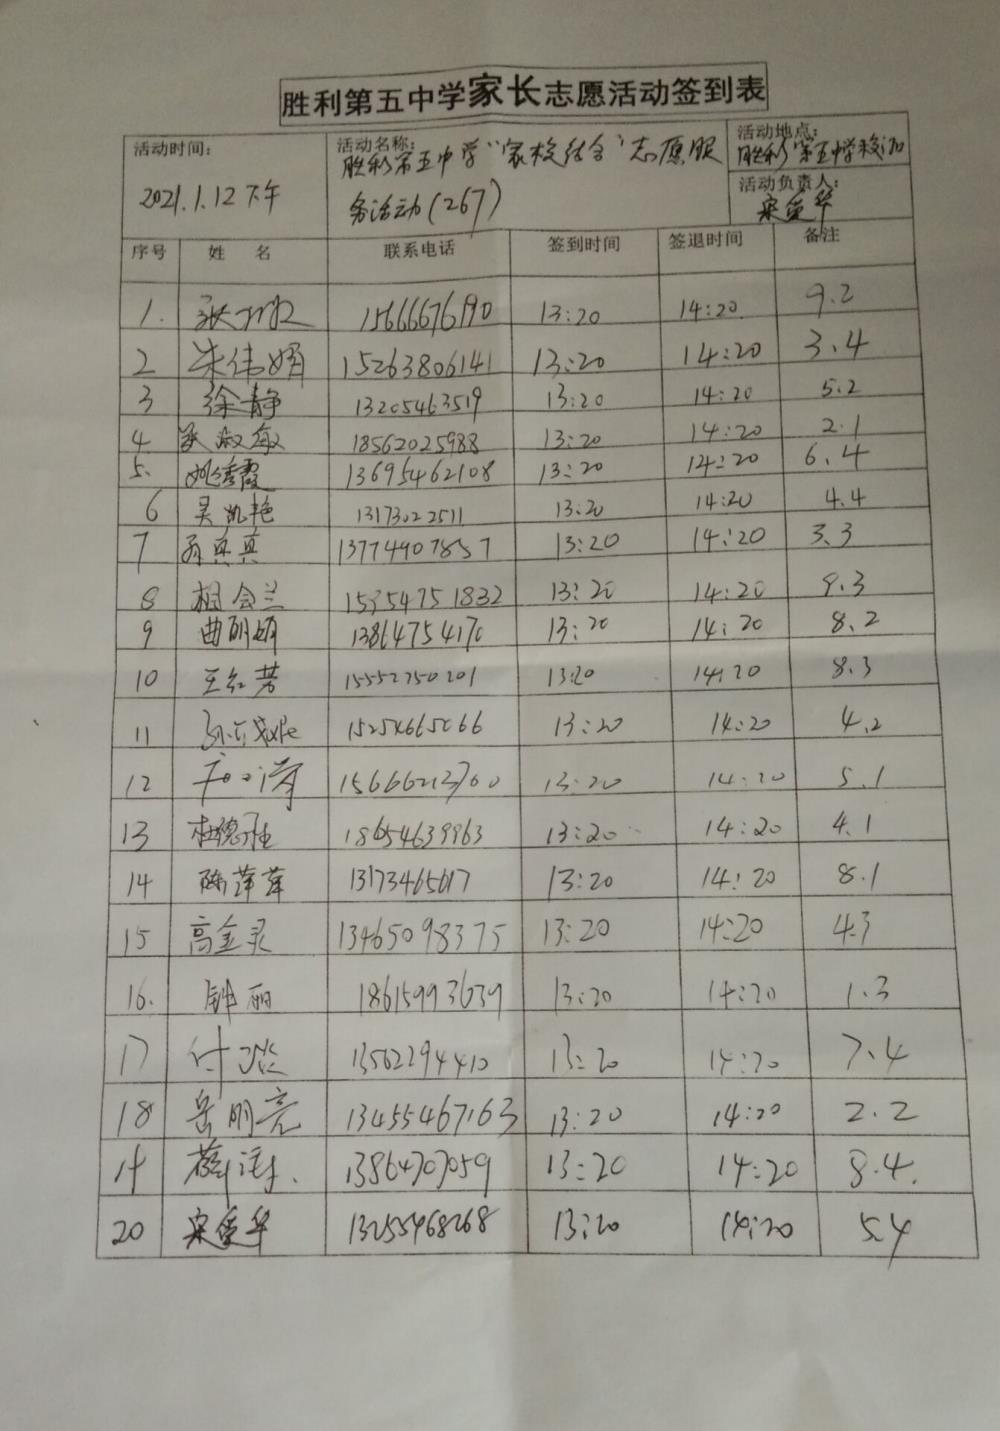 胜利第五中学家长志愿活动签到表
活动时间： 2021.1.12下午
活动名称： 胜利第五中学“家校结合”志愿服务活动(267)
活动地点： 胜利第五中学校门口
活动负责人： 宋爱华
序号 姓名 联系电话 签到时间 签退时间 备注
1. 15666676190 13:20 14:20 9.2
2 朱伟娟 15263806141 13:20 14:20 3.4
3 徐静 13205463519 13:20 14:20 5.2
4. 18562025988 13:20 14:20 2.1
5. 姚秀霞 13695462108 13:20 14:20 6.4
6 吴凯艳 13173022511 13:20 14:20 4.4
7 孙真真 13774907857 13:20 14:20 3.3
8 相会兰 15954751832 13:20 14:20 9.3
9 曲明娟 13864754170 13:20 14:20 8.2
10 王红芳 15552750201 13:20 14:20 8.3
11 15254665066 13:20 14:20 4.2
12 15666213700 13:20 14:20 5.1
13 杜德胜 18654639963 13:20 14:20 4.1
14 陈萍萍 13173465617 13:20 14:20 8.1
15 高金灵 13465098375 13:20 14:20 4.3
16. 钟丽 18615993639 13:20 14:20 1.3
17 13562294410 13:20 14:20 7.4
18 岳明亮 13455467163 13:20 14:20 2.2
19 13864707059 13:20 14:20 8.4.
20 宋爱华 13255468268 13:20 14:20 5.4